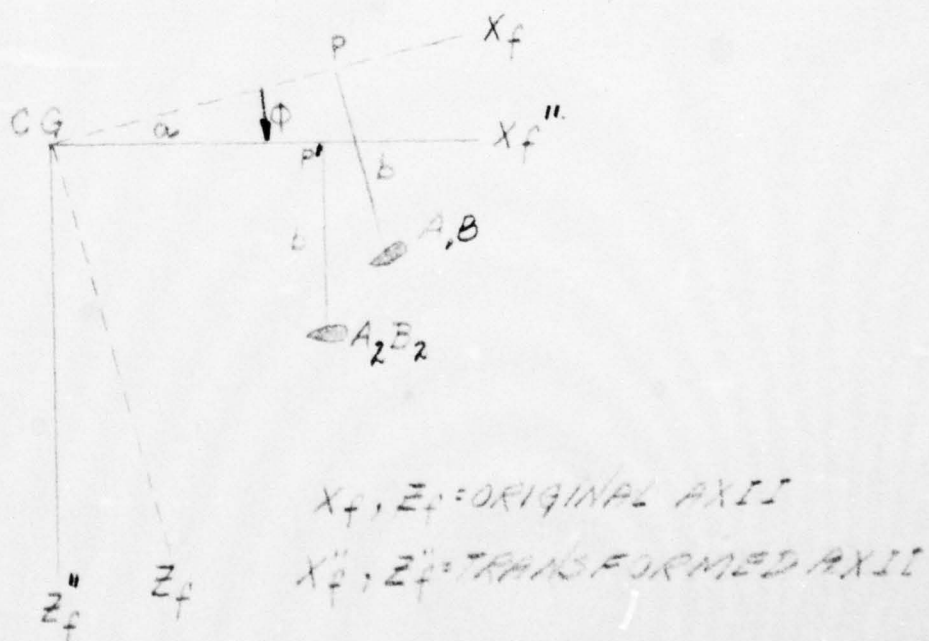 X_f
P
CG
a
Φ
X_f"
P'
b
A, B
b
A_2 B_2
X_f, Z_f = ORIGINAL AXII
X_f", Z_f" = TRANSFORMED AXII
Z_f"
Z_f